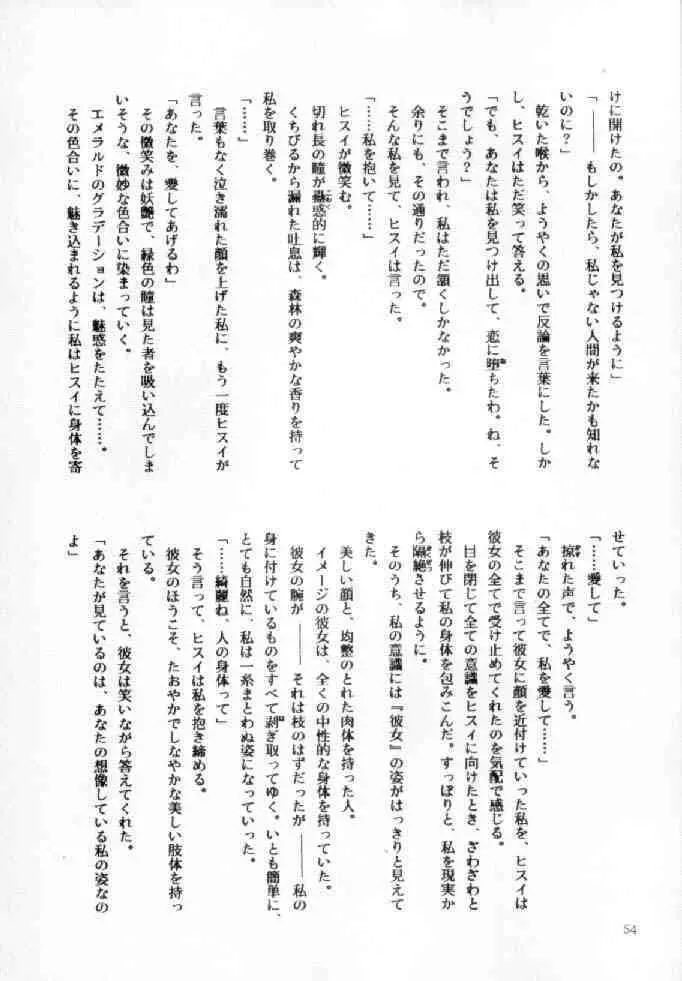 けに開けたの。あなたが私を見つけるように」
「――もしかしたら、私じゃない人間が来たかも知れな
いのに？」
乾いた喉から、ようやくの思いで反論を言葉にした。しか
し、ヒスイはただ笑って答える。
「でも、あなたは私を見つけ出して、恋に堕ちたわ。ね、そ
うでしょう？」
そこまで言われ、私はただ頷くしかなかった。
余りにも、その通りだったので。
そんな私を見て、ヒスイは言った。
「……私を抱いて……」
ヒスイが微笑む。
切れ長の瞳が蠱惑的に輝く。
くちびるから漏れた吐息は、森林の爽やかな香りを持って
私を取り巻く。
「……」
言葉もなく泣き濡れた顔を上げた私に、もう一度ヒスイが
言った。
「あなたを、愛してあげるわ」
その微笑みは妖艶で、緑色の瞳は見た者を吸い込んでしま
いそうな、微妙な色合いに染まっていく。
エメラルドのグラデーションは、魅惑をたたえて……。
その色合いに、魅き込まれるように私はヒスイに身体を寄
せていった。
「……愛して」
掠れた声で、ようやく言う。
「あなたの全てで、私を愛して……」
そこまで言って彼女に顔を近付けていった私を、ヒスイは
彼女の全てで受け止めてくれたのを気配で感じる。
目を閉じて全ての意識をヒスイに向けたとき、ざわざわと
枝が伸びて私の身体を包みこんだ。すっぽりと、私を現実か
ら隔絶させるように。
そのうち、私の意識には『彼女』の姿がはっきりと見えて
きた。
美しい顔と、均整のとれた肉体を持った人。
イメージの彼女は、全くの中性的な身体を持っていた。
彼女の腕が――それは枝のはずだったが――私の
身に付けているものをすべて剥ぎ取ってゆく。いとも簡単に、
とても自然に、私は一糸まとわぬ姿になっていった。
「……綺麗ね、人の身体って」
そう言って、ヒスイは私を抱き締める。
彼女のほうこそ、たおやかでしなやかな美しい肢体を持っ
ている。
それを言うと、彼女は笑いながら答えてくれた。
「あなたが見ているのは、あなたの想像している私の姿なの
よ」
54